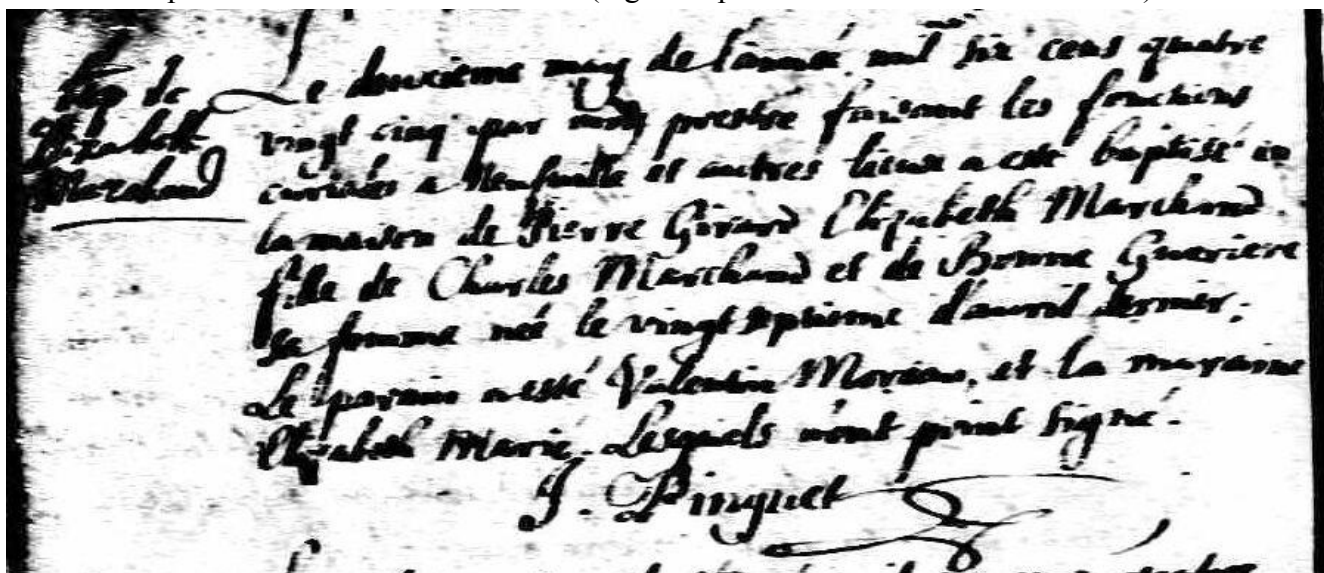 Bap de
Elizabeth
Marchand
Le deuxieme may de l'année mil six cens quatre
vingt cinq par moy prestre faisant les fonctions
curiales a Neufville et autres lieux a esté baptisé en
la maison de Pierre Girard Elizabeth Marchand
fille de Charles Marchand et de Bonne Gueriere
sa femme née le vingt septieme d'avril dernier.
Le parain a esté Valentin Moreau, et la maraine
Elizabeth Marié. Lesquels n'ont point signé.
J. Pinguet